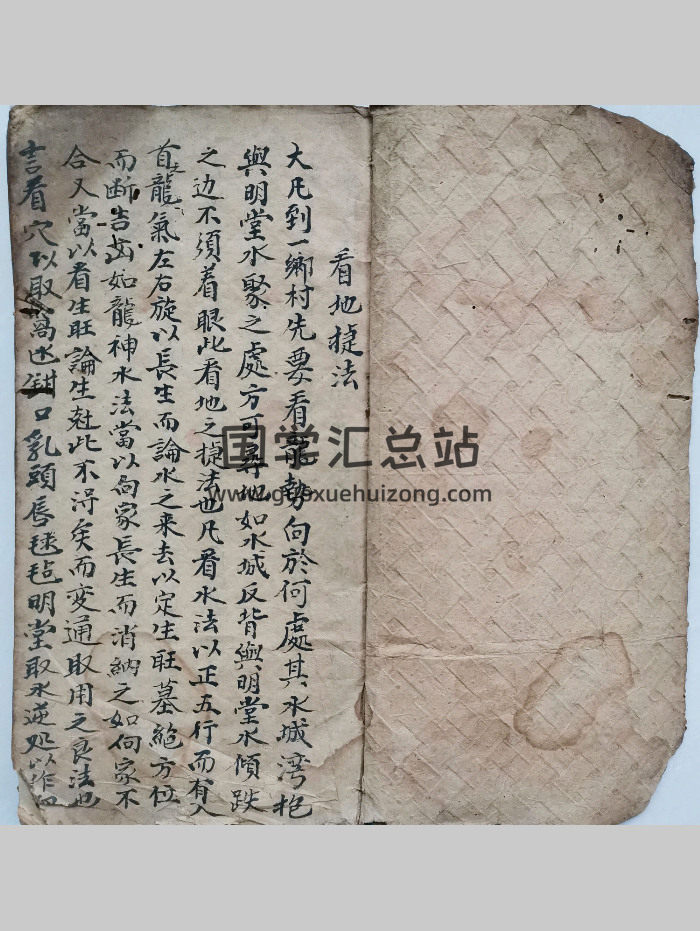 看地捷法
大凡到一鄉村先要看龍勢向於何處其水城湾抱
與明堂水聚之處方可尋地如水城反背與明堂水傾跌
之边不須着眼此看地之捷法也凡看水法以正五行而有入
首龍氣左右旋以長生而論水之来去以定生旺墓絕方位
而断吉凶如龍神水法當以向家長生而消納之如向家不
合又當以看生旺論生尅此不淂矣而变通取用之良法也
言看穴以取窩 鉗口乳頭唇毬毡明堂取水逆処以作
国学汇总站
www.guoxuehuizong.com